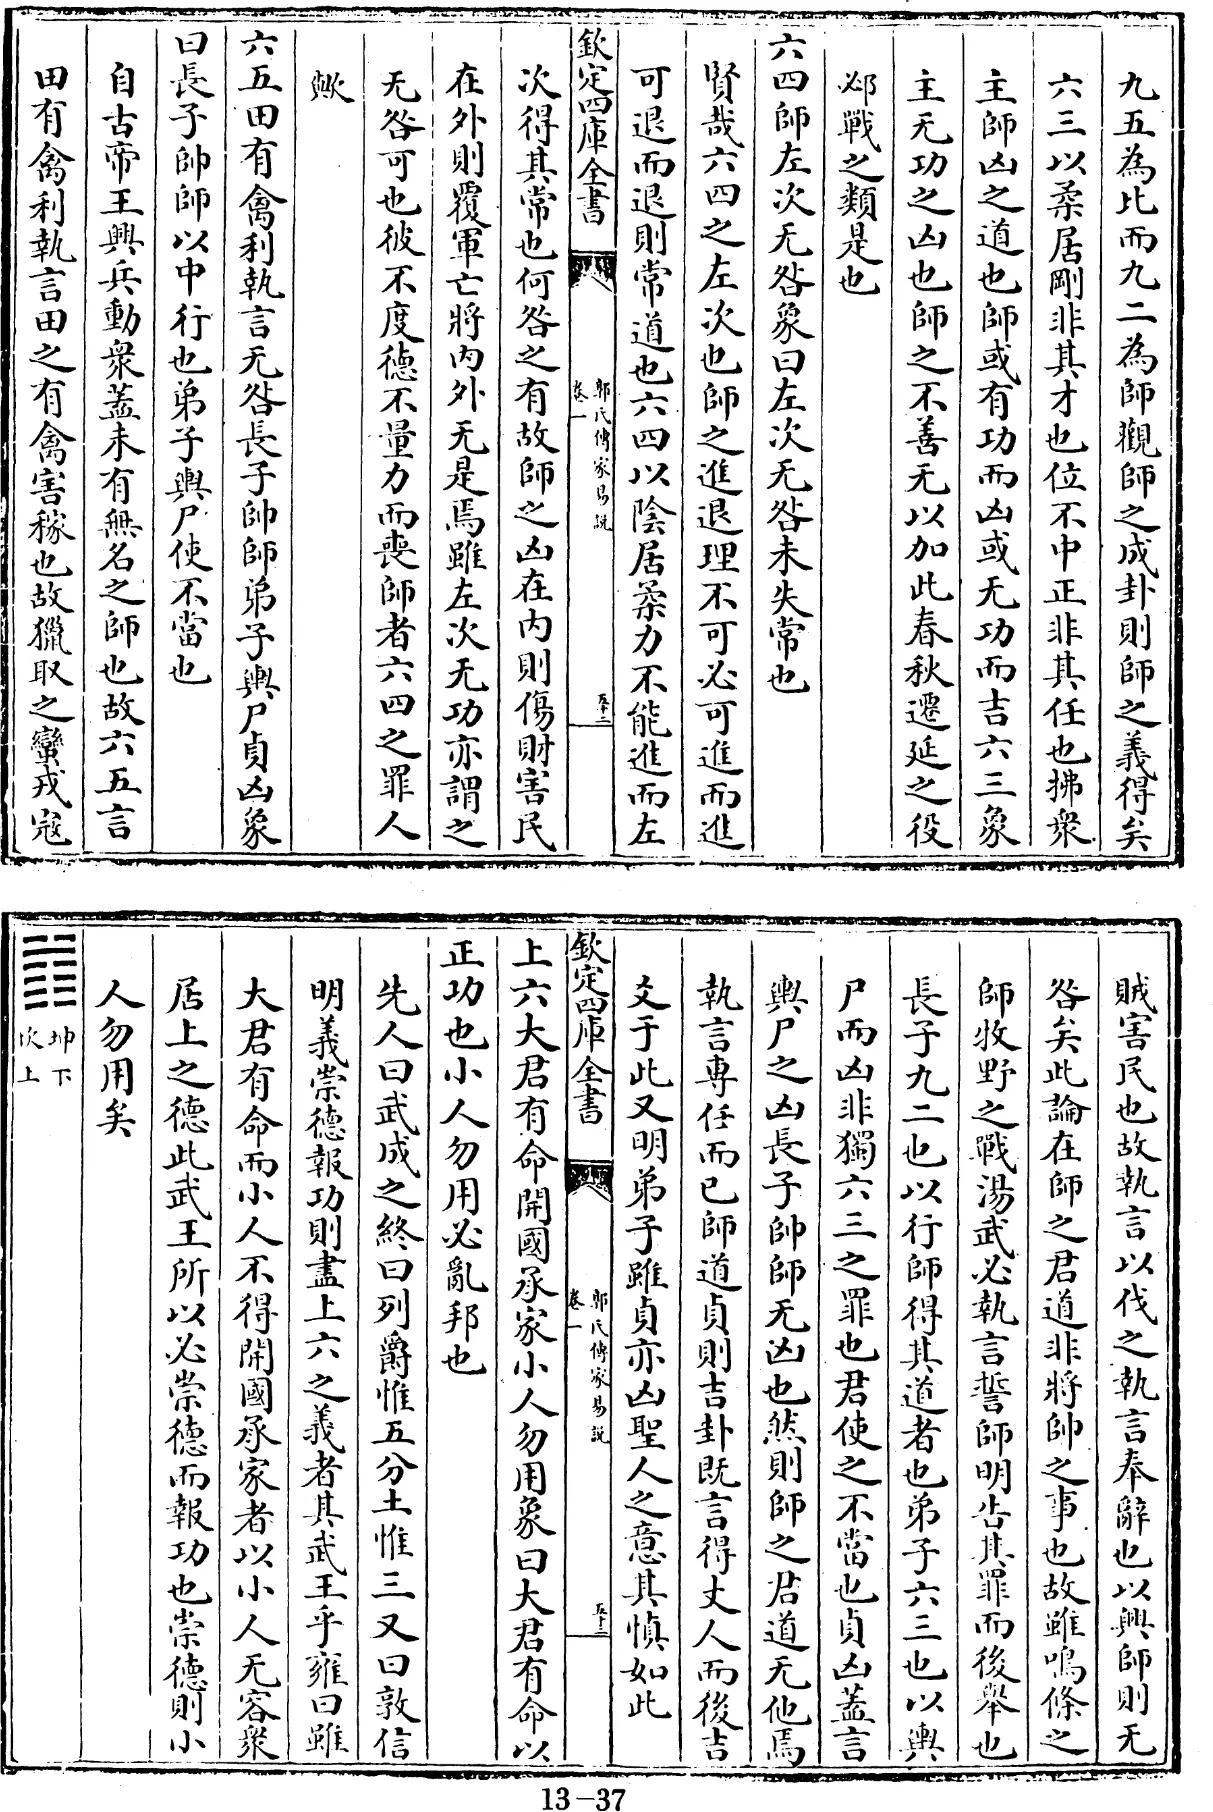 九五為比而九二為師觀師之成卦則師之義得矣
六三以柔居剛非其才也位不中正非其任也拂衆
主師凶之道也師或有功而凶或无功而吉六三象
主无功之凶也師之不善无以加此春秋遷延之役
邲戰之類是也
六四師左次无咎象曰左次无咎未失常也
賢哉六四之左次也師之進退理不可必可進而進
可退而退則常道也六四以陰居柔力不能進而左
欽定四庫全書
郭氏傳家易說
卷一
五十二
次得其常也何咎之有故師之凶在内則傷財害民
在外則覆軍亡將内外无是焉雖左次无功亦謂之
无咎可也彼不度德不量力而喪師者六四之罪人
歟
六五田有禽利執言无咎長子帥師弟子輿尸貞凶象
曰長子帥師以中行也弟子輿尸使不當也
自古帝王興兵動衆蓋未有無名之師也故六五言
田有禽利執言田之有禽害稼也故獵取之蠻戎寇
賊害民也故執言以伐之執言奉辭也以興師則无
咎矣此論在師之君道非將帥之事也故雖鳴條之
師牧野之戰湯武必執言誓師明告其罪而後舉也
長子九二也以行師得其道者也弟子六三也以輿
尸而凶非獨六三之罪也君使之不當也貞凶蓋言
輿尸之凶長子帥師无凶也然則師之君道无他焉
執言專任而已師道貞則吉卦既言得丈人而後吉
爻于此又明弟子雖貞亦凶聖人之意其慎如此
欽定四庫全書
郭氏傳家易說
卷一
五十三
上六大君有命開國承家小人勿用象曰大君有命以
正功也小人勿用必亂邦也
先人曰武成之終曰列爵惟五分土惟三又曰敦信
明義崇德報功則盡上六之義者其武王乎雍曰雖
大君有命而小人不得開國承家者以小人无容衆
居上之德此武王所以必崇德而報功也崇德則小
人勿用矣
坤下
坎上
13-37